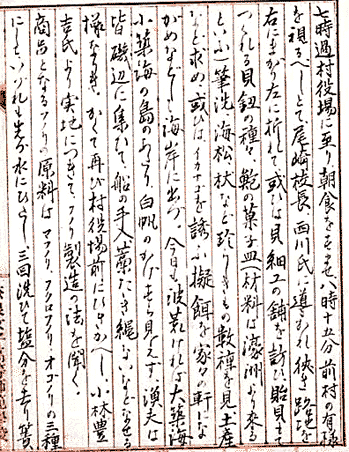 七時過村役場に至り朝食をそませ八時十五分前村の有様
を視るべしとて尾崎枝長西川氏に導かれ狭き路地を
右にまがり左に折れて或ひは貝細工の舗を訪ひ貽貝もて
つくれる貝釦の種々鮑の菓子皿(材料は濠洲より来る
といふ)筆洗海松杖など珍らしきもの数種を見土産
など求め或ひはイカナゴを誘ふ擬餌を家々の軒に
かめなどし海岸に出づ、今日も波荒ければ大築海
小築海の島のあたり白帆のかげすら見えず漁夫は
皆磯辺に集ひて船の手入藁たき縄ないなどなせる
様なりき、かくて再び村役場前に引きかへし小林豊
吉氏より実地につきてフノリ製造の法を聞く。
商品となるフノリの原料はマフノリ、フクロフノリ、オゴノリの三種
にしていづれも先づ水にひたし三回洗ひて塩分を去り簀